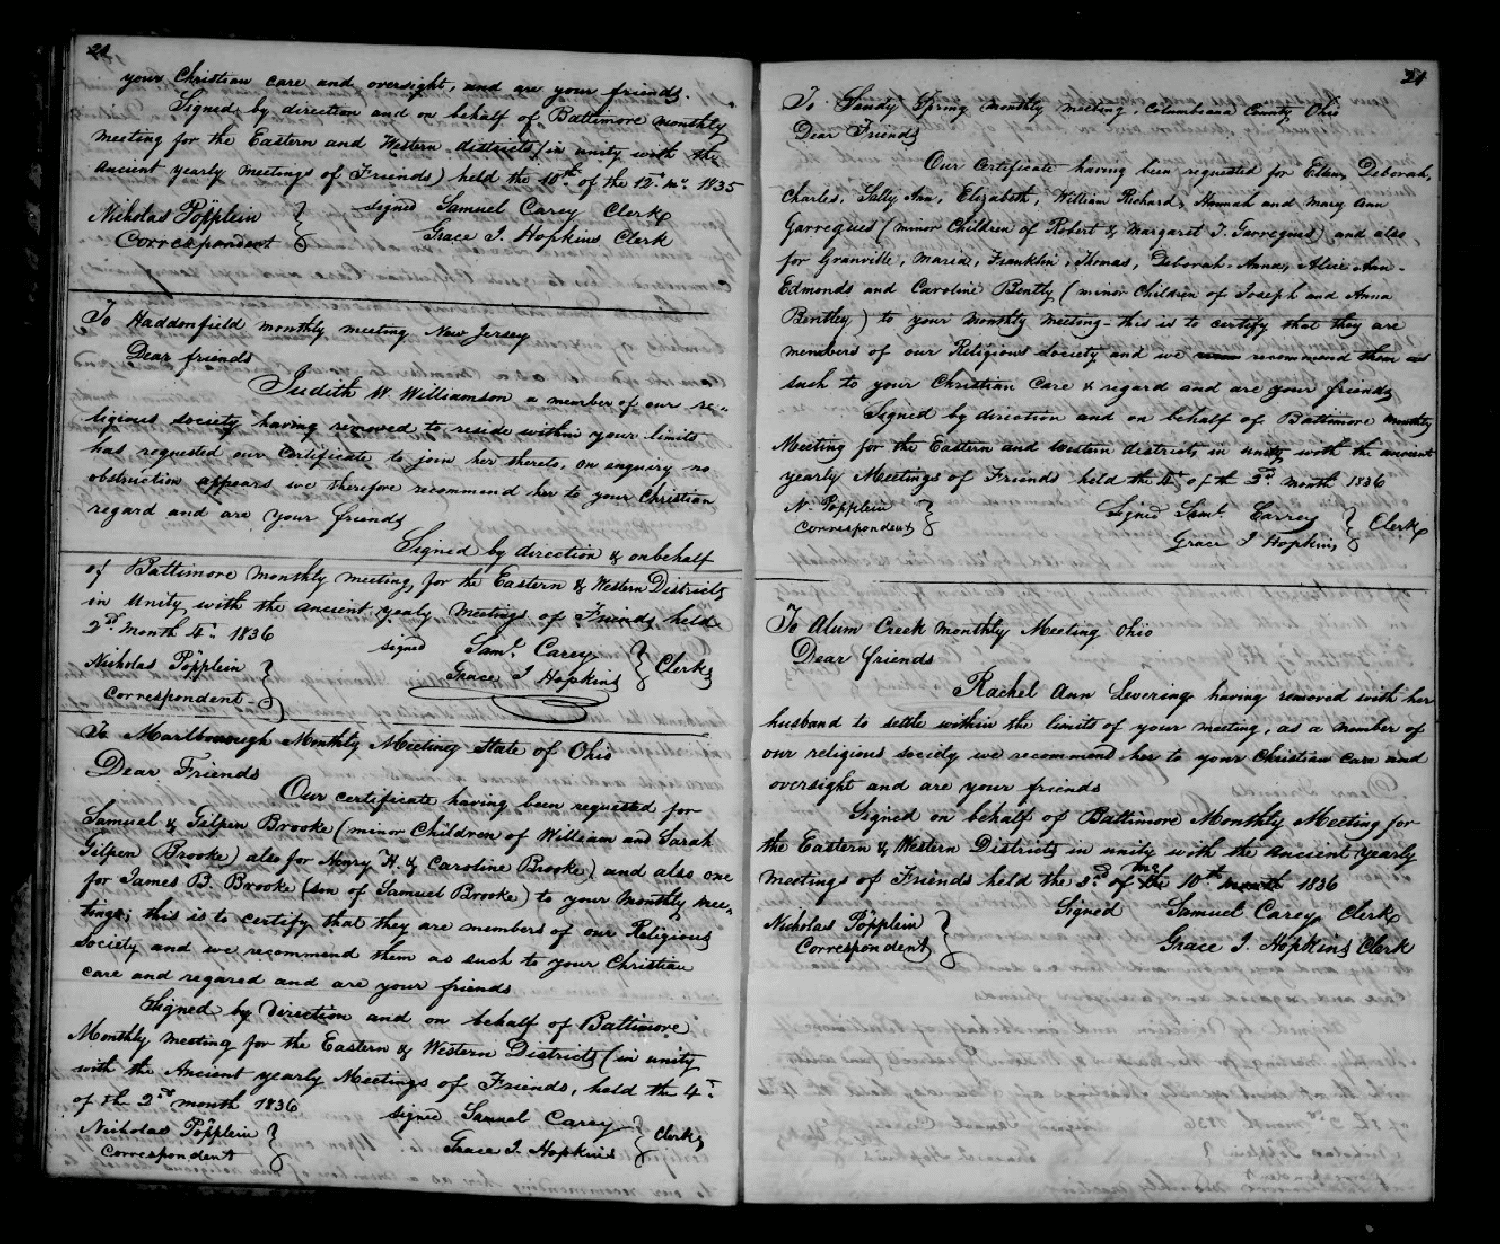 20
your Christian care and oversight, and are your friends.
Signed by direction and on behalf of Baltimore monthly
meeting for the Eastern and Western districts (in unity with the
ancient yearly meetings of Friends) held the 10th of the 12 mo 1835
Nicholas Pöpplein signed Samuel Carey Clerk
Correspondent Grace I. Hopkins Clerk
To Haddonfield monthly meeting New Jersey
Dear friends
Judith W. Williamson a member of our re-
ligious society having removed to reside within your limits
has requested our Certificate to join her thereto, on enquiry no
obstruction appears we therefore recommend her to your Christian
regard and are your friends
Signed by direction & on behalf
of Baltimore monthly meeting, for the Eastern & Western Districts
in Unity with the ancient yealy meetings of Friends held
2d. month 4th 1836
Nicholas Pöpplein signed Saml. Carey
Correspondent Grace I Hopkins Clerks
To Marlborough Monthly Meeting State of Ohio
Dear Friends
Our certificate having been requested for
Samuel & Gilpin Brooke (minor Children of William and Sarah
Gilpen Brooke) also for Henry H. & Caroline Brooke) and also one
for James B. Brooke (son of Samuel Brooke) to your monthly mee-
tings; this is to certify that they are members of our Religious
society and we recommend them as such to your Christian
care and regared and are your friends
Signed by Direction and on behalf of Baltimore
Monthly meeting for the Eastern & Western Districts (in unity
with the Ancient yearly Meetings of Friends, held the 4th
of the 2nd month 1836
Nicholas Pöpplein signed Samuel Carey
Correspondent Grace I. Hopkins Clerks
21
To Sandy Spring monthly meeting, Columbiana County Ohio
Dear Friends
Our Certificate having been requested for Ellen, Deborah,
Charles, Sally Ann, Elizabeth, William Richard, Hannah and Mary Ann
Garregues (minor Children of Robert & Margaret T. Garregues) and also
for Granville, Maria, Franklin, Thomas, Deborah-Anna, Alice Ann-
Edmonds and Caroline Bently (minor Children of Joseph and Anna
Bentley) to your monthly meeting - this is to certify that they are
members of our Religious Society and we recommend them as
such to your Christian Care & regard and are your friends
Signed by direction and on behalf of Baltimore monthly
Meeting for the Eastern and western districts in unity with the ancient
yearly Meetings of Friends held the 4th of th 2d month 1836
N. Pöpplein Signed Saml. Carrey
Correspondent Grace I Hopkins Clerks
To Alum Creek monthly Meeting Ohio
Dear friends
Rachel Ann Levering having removed with her
husband to settle within the limits of your meeting, as a member of
our religious society we recommend her to your Christian care and
oversight and are your friends
Signed on behalf of Baltimore Monthly Meeting for
the Eastern & Western Districts in unity with the Ancient yearly
meetings of Friends held the 3rd of the 10th month 1836
Signed Samuel Carey Clerk
Nicholas Pöpplein
Correspondent Grace I. Hopkins Clerk